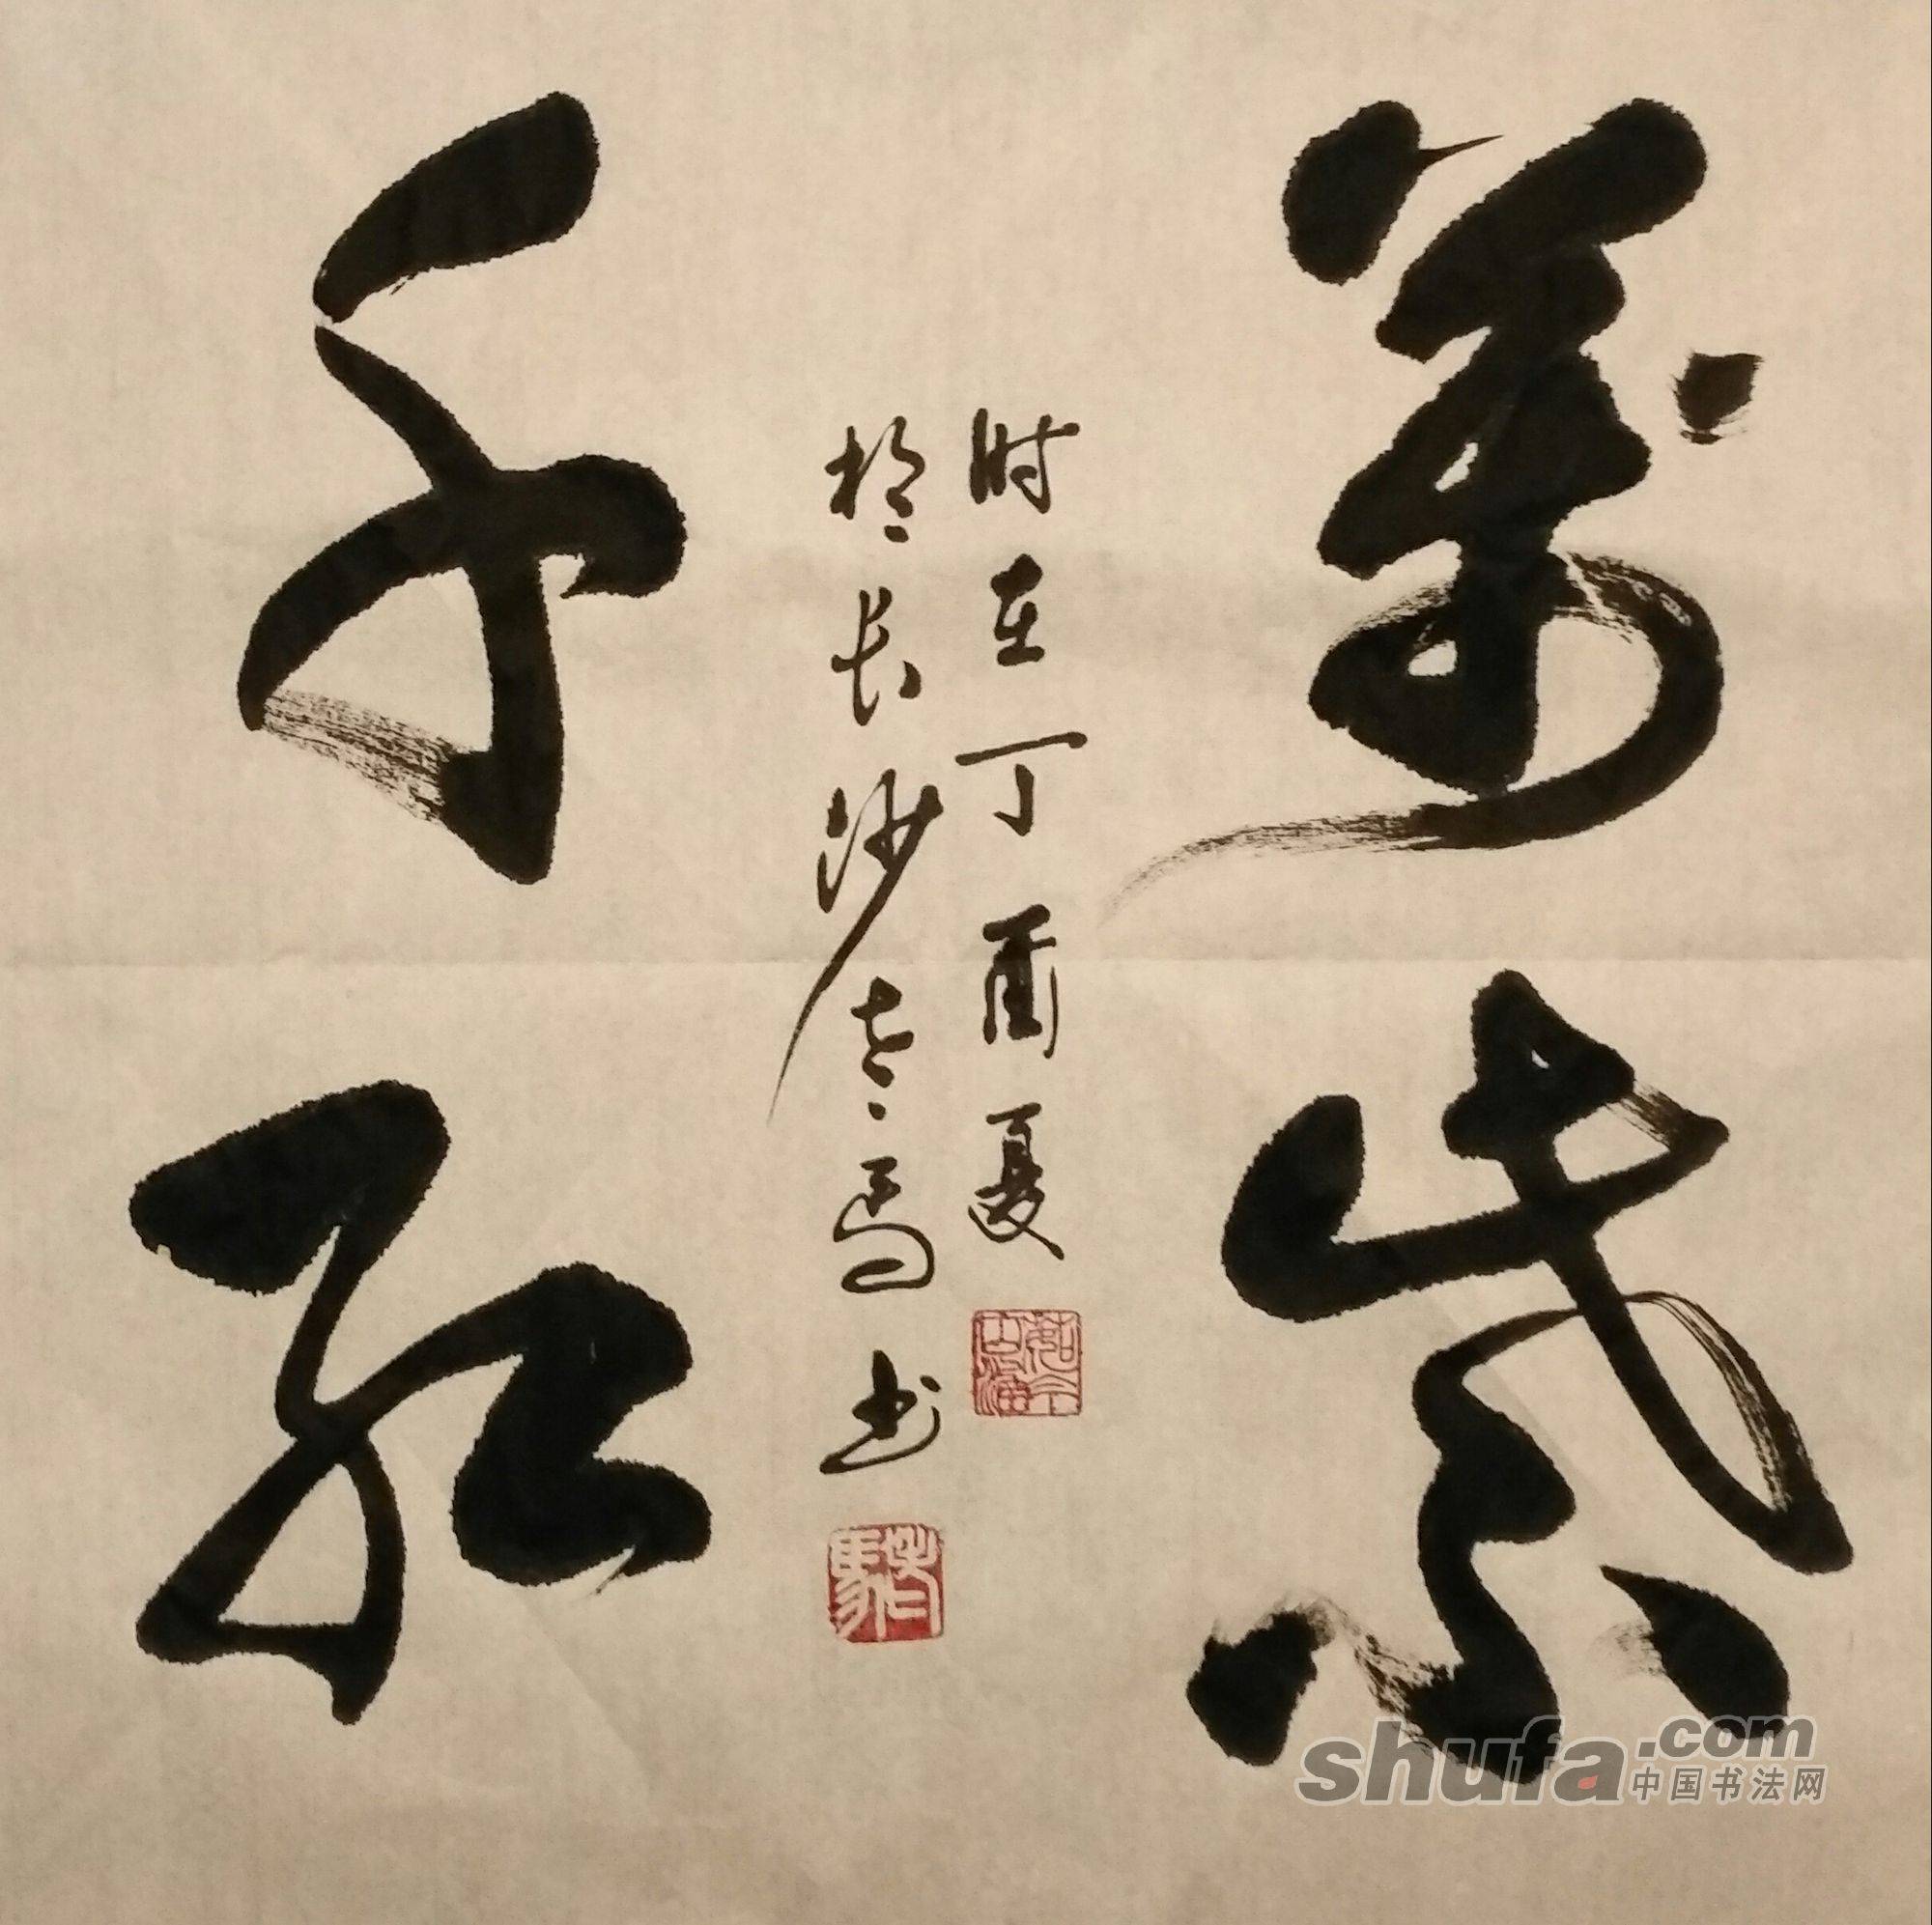 萬紫
千红
时在丁酉夏
于长沙老马书
shufa.com
中国书法网